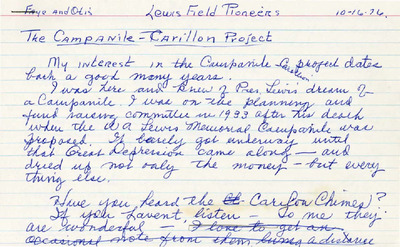 Faye and Otis Lewis Field Pioneers 10-16-76.
The Campanile-Carillon Project
My interest in the Campanile Carillon project dates
back a good many years.
I was here and knew of Pres. Lewis dream of
a Campanile. I was on the planning and
fund raising committee in 1933 after his death
when the W A Lewis Memorial Campanile was
proposed. It barely got underway until
that Great Depression came along — and
dried up not only the money — but every
thing else.
Have you heard the Carillon Chimes?
If you havent, listen — To me they
are wonderful — I love to get an
occasional note from them living a distance